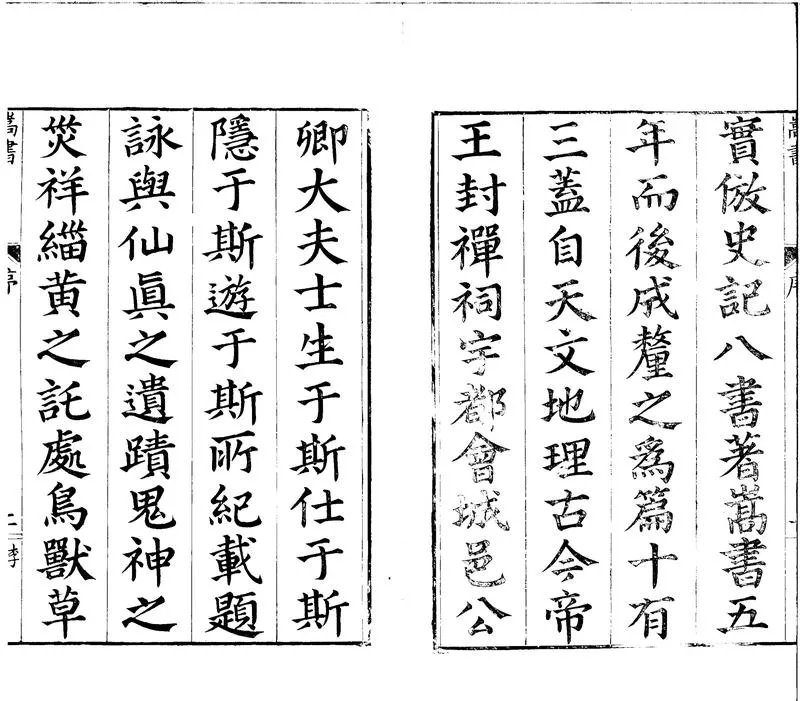 實倣史記八書著嵩書五
年而後成釐之爲篇十有
三蓋自天文地理古今帝
王封禪祠宇都會城邑公
卿大夫士生于斯仕于斯
隱于斯遊于斯所紀載題
詠與仙眞之遺蹟鬼神之
災祥緇黄之託處鳥獸草
嵩書
序
二